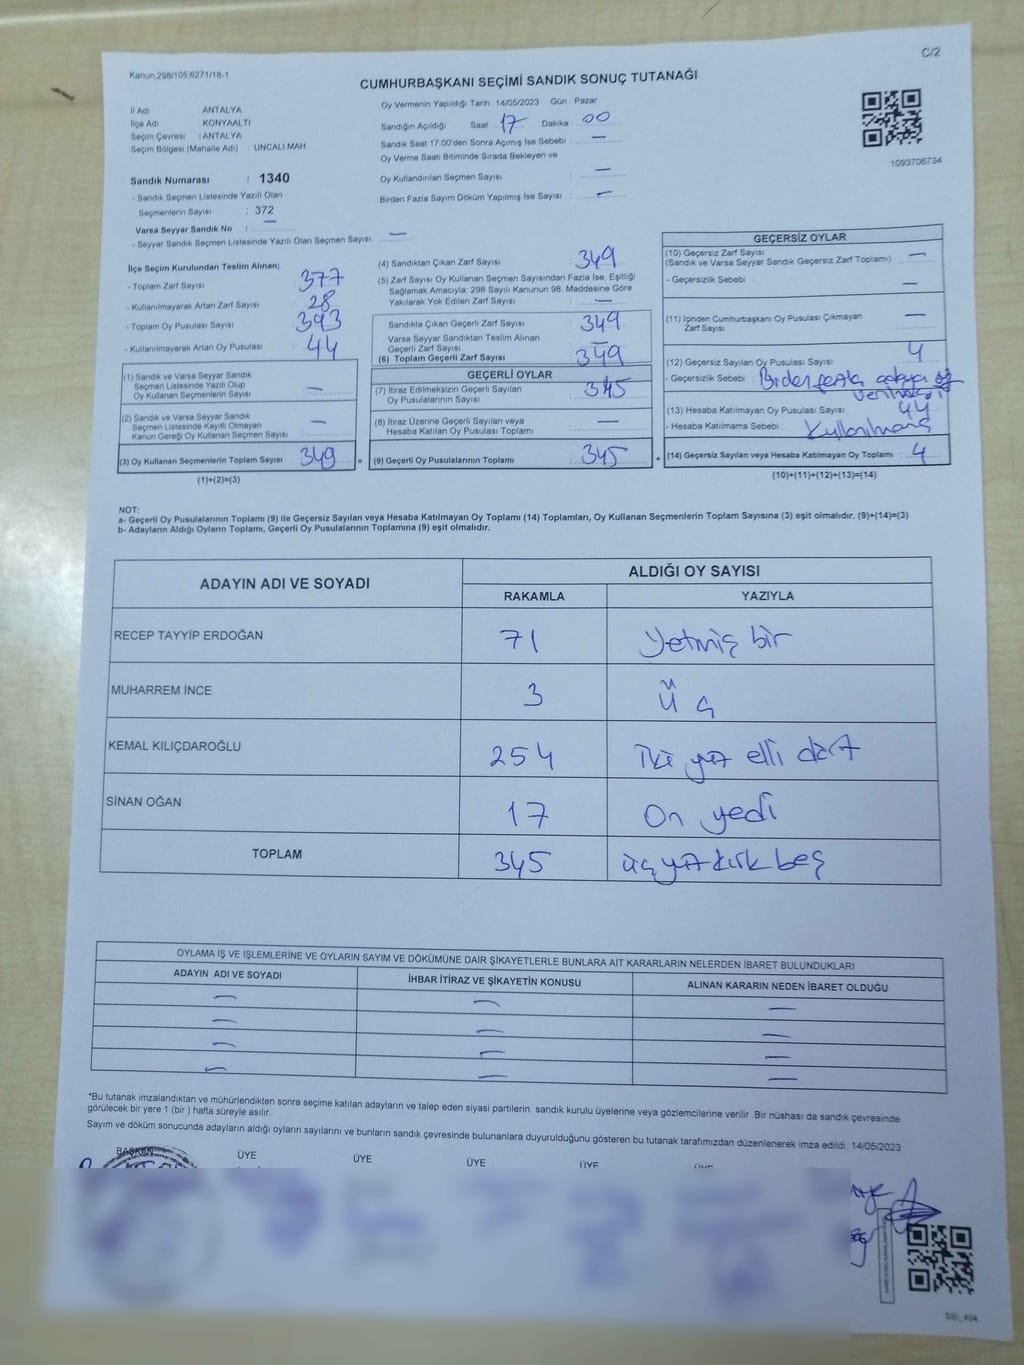 C/2
Kanun:298/105;6271/18-1
CUMHURBAŞKANI SEÇİMİ SANDIK SONUÇ TUTANAĞI
İl Adı ANTALYA
İlçe Adı KONYAALTI
Seçim Çevresi : ANTALYA
Seçim Bölgesi (Mahalle Adı) : UNCALI MAH.
Oy Vermenin Yapıldığı Tarih : 14/05/2023 Gün : Pazar
Sandığın Açıldığı Saat 17 Dakika : 00
Sandık Saat 17.00'den Sonra Açılmış İse Sebebi : —
Oy Verme Saati Bitiminde Sırada Bekleyen ve
Oy Kullandırılan Seçmen Sayısı : —
Birden Fazla Sayım Döküm Yapılmış İse Sayısı : —
1093706734
Sandık Numarası : 1340
- Sandık Seçmen Listesinde Yazılı Olan
Seçmenlerin Sayısı : 372
Varsa Seyyar Sandık No : —
- Seyyar Sandık Seçmen Listesinde Yazılı Olan Seçmen Sayısı: —
İlçe Seçim Kurulundan Teslim Alınan;
- Toplam Zarf Sayısı : 377
- Kullanılmayarak Artan Zarf Sayısı : 28
- Toplam Oy Pusulası Sayısı : 393
- Kullanılmayarak Artan Oy Pusulası : 44
(1) Sandık ve Varsa Seyyar Sandık
Seçmen Listesinde Yazılı Olup
Oy Kullanan Seçmenlerin Sayısı : —
(2) Sandık ve Varsa Seyyar Sandık
Seçmen Listesinde Kayıtlı Olmayan
Kanun Gereği Oy Kullanan Seçmen Sayısı : —
(3) Oy Kullanan Seçmenlerin Toplam Sayısı : 349 =
(1)+(2)=(3)
(4) Sandıktan Çıkan Zarf Sayısı : 349
(5) Zarf Sayısı Oy Kullanan Seçmen Sayısından Fazla İse, Eşitliği
Sağlamak Amacıyla; 298 Sayılı Kanunun 98. Maddesine Göre
Yakılarak Yok Edilen Zarf Sayısı : —
Sandıkta Çıkan Geçerli Zarf Sayısı : 349
Varsa Seyyar Sandıktan Teslim Alınan
Geçerli Zarf Sayısı
(6) Toplam Geçerli Zarf Sayısı : 349
GEÇERLİ OYLAR
(7) İtiraz Edilmeksizin Geçerli Sayılan
Oy Pusulalarının Sayısı : 345
(8) İtiraz Üzerine Geçerli Sayılan veya
Hesaba Katılan Oy Pusulası Toplamı : —
(9) Geçerli Oy Pusulalarının Toplamı : 345 +
GEÇERSİZ OYLAR
(10) Geçersiz Zarf Sayısı
(Sandık ve Varsa Seyyar Sandık Geçersiz Zarf Toplamı) : —
- Geçersizlik Sebebi : —
(11) İçinden Cumhurbaşkanı Oy Pusulası Çıkmayan
Zarf Sayısı : —
(12) Geçersiz Sayılan Oy Pusulası Sayısı : 4
- Geçersizlik Sebebi : Birden fazla adaya oy
verilmesi
(13) Hesaba Katılmayan Oy Pusulası Sayısı : 44
- Hesaba Katılmama Sebebi : Kullanılmamış
(14) Geçersiz Sayılan veya Hesaba Katılmayan Oy Toplamı : 4
(10)+(11)+(12)+(13)=(14)
NOT:
a- Geçerli Oy Pusulalarının Toplamı (9) ile Geçersiz Sayılan veya Hesaba Katılmayan Oy Toplamı (14) Toplamları, Oy Kullanan Seçmenlerin Toplam Sayısına (3) eşit olmalıdır. (9)+(14)=(3)
b- Adayların Aldığı Oyların Toplamı, Geçerli Oy Pusulalarının Toplamına (9) eşit olmalıdır.
ADAYIN ADI VE SOYADI ALDIĞI OY SAYISI
RAKAMLA YAZIYLA
RECEP TAYYİP ERDOĞAN 71 Yetmiş bir
MUHARREM İNCE 3 Üç
KEMAL KILIÇDAROĞLU 254 iki yüz elli dört
SİNAN OĞAN 17 On yedi
TOPLAM 345 üç yüz kırk beş
OYLAMA İŞ VE İŞLEMLERİNE VE OYLARIN SAYIM VE DÖKÜMÜNE DAİR ŞİKAYETLERLE BUNLARA AİT KARARLARIN NELERDEN İBARET BULUNDUKLARI
ADAYIN ADI VE SOYADI İHBAR İTİRAZ VE ŞİKAYETİN KONUSU ALINAN KARARIN NEDEN İBARET OLDUĞU
— — —
— — —
— — —
— — —
*Bu tutanak imzalandıktan ve mühürlendikten sonra seçime katılan adayların ve talep eden siyasi partilerin sandık kurulu üyelerine veya gözlemcilerine verilir. Bir nüshası da sandık çevresinde
görülecek bir yere 1 (bir ) hafta süreyle asılır.
Sayım ve döküm sonucunda adayların aldığı oyların sayılarını ve bunların sandık çevresinde bulunanlara duyurulduğunu gösteren bu tutanak tarafımızdan düzenlenerek imza edildi. 14/05/2023
BAŞKAN ÜYE ÜYE ÜYE ÜYE ÜYE